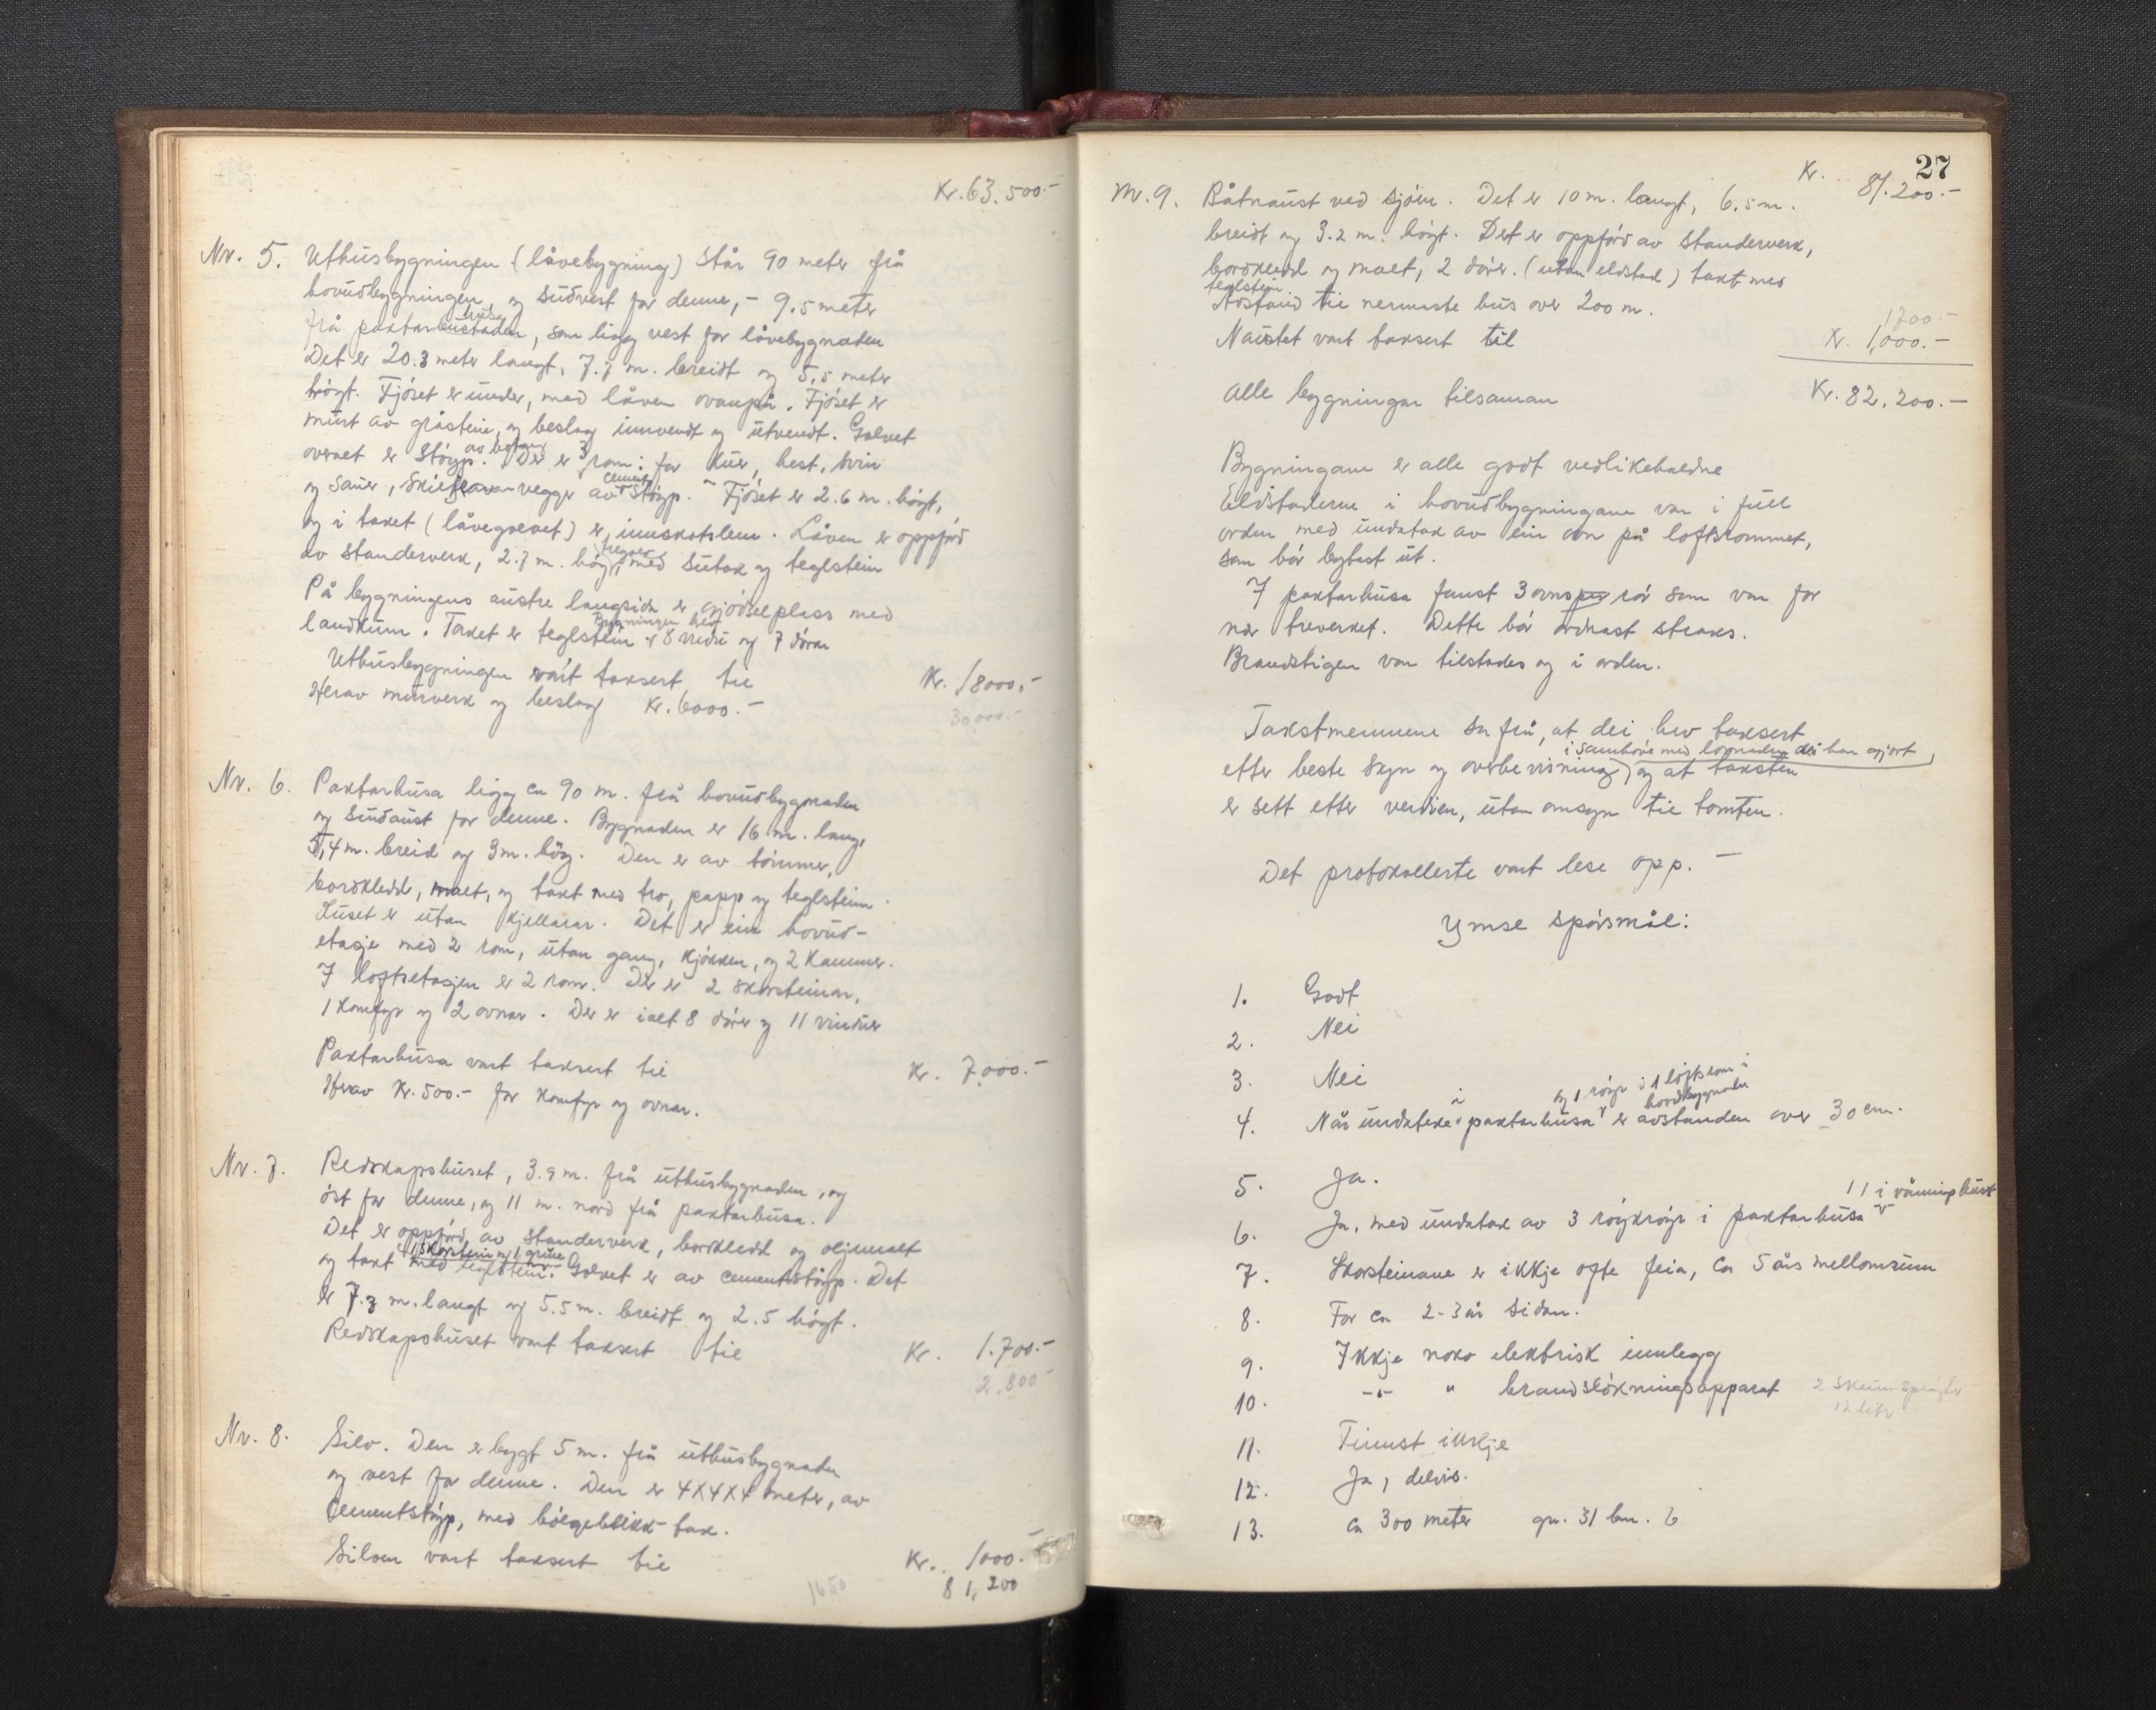 Kr. 63.500.-
Nr. 5. Uthusbygningen (låvebygning) står 90 meter frå
hovudbygningen, og sudvest for denne, - 9.5 meter
husa
frå paktarbustaden, som ligg vest for låvebygnaden
Det er 20.3 meter langt, 7.7 m. breidt og 5,5 meter
högt. Fjöset er under, med låven ovanpå. Fjöset er
murt av gråstein, og beslag innvendt og utvendt. Golvet
av betong 3
overalt er stöyp. Der er rom: for kuer, hest, svin
cement
og sauer, vegger av stöyp. - Fjöset er 2.6 m. högt,
og i taket (låvegolvet) er innskotslem. Låven er oppförd
av standerverk, 2.7 m. hög, med sutak og teglstein
På bygningens austre langside er gjödselplass med
Bygningen har
landkum. Taket er teglstein. 8 vindu og 7 dörar
Uthusbygningen vart taksert til Kr. 18000,-
Herav murverk og beslag Kr. 6000.- 30,000.-
Nr. 6. Paktarhusa ligg ca 90 m. frå hovudbygnaden
og sudaust for denne. Bygnaden er 16 m. lang,
5,4 m. breid og 3 m. hög. Den er av tömmer,
bordkledd, malt, og takt med tro, papp og teglstein.
Huset er utan kjellarar. Det er ein hovud-
etasje med 2 rom, utan gang, kjökken, og 2 kammer.
I loftsetasjen er 2 rom. Der er 2 skorsteinar,
1 komfyr og 2 ovnar. Der er ialt 8 dörer og 11 vinduer
Paktarhusa vart taksert til Kr. 7.000.-
Herav Kr. 500.- for komfyr og ovnar.
Nr. 7. Redskapshuset, 3.9 m. frå uthusbygnaden, og
öst for denne, og 11 m. nord frå paktarhusa.
Det er oppförd av standerverk, bordkledd og oljemalt
1 skorstein og 1 grue
og takt med teglstein. Golvet er av cementstöyp. Det
er 7.3 m. langt og 5.5 m. breidt og 2.5 högt.
Redskapshuset vart taksert til Kr. 1.700.-
2,800-
Nr. 8. Silo. Den er bygt 5 m. frå uthusbygnaden
og vest for denne. Den er 4X4X4 meter, av
Cementstöyp, med bölgeblikk tak.
Siloen vart taksert til Kr. 1000.-
1650 81,200
27
Kr. 81.200.-
Nr. 9. Båtnaust ved sjöen. Det er 10 m. langt, 6.5 m.
breidt og 3.2 m. högt. Det er oppförd av standerverk,
bordkledd og malt, 2 dörer. (utan eldstad) takt med
teglstein.
Avstand til nermaste hus over 200 m.
1700.-
Naustet vart taksert til Kr. 1,000.-
Alle bygningar tilsaman Kr. 82.200.-
Bygningane er alle godt vedlikehaldne
Eldstaderne i hovudbygningane var i full
orden med undatak av ein ovn på loftsrommet,
som bör bytast ut.
I paktarhusa fanst 3 ovnsrör som var for
nær treverket. Dette bör ordnast straks.
Brandstigen var tilstades og i orden.
Takstmennene sa frå, at dei hev taksert
i samhöve med lovnaden dei har gjort
etter beste skyn og overbevisning, og at taksten
er sett etter verdien, utan omsyn til tomten.
Det protokollerte vart lese opp. -
Ymse spörsmål:
1. Godt
2. Nei
3. Nei
og 1 röyr i 1 loftsrom i
hovudbygnaden
4. Når undateke i paktarhusa er avstanden over 30 cm.
5. Ja.
11 i våningshuset
6. Ja, med undatak av 3 röykröyr i paktarhusa
7. Skorsteinane er ikkje ofte feia, ca 5 års mellomrum
8. For ca 2-3 år sidan.
9. Ikkje noko elektrisk innlegg
10. -"- " brandslökningsapparat 2 skum
12 litr
11. Finnst ikkje
12. Ja, delvis.
13. ca 300 meter gn. 31 bn. 6